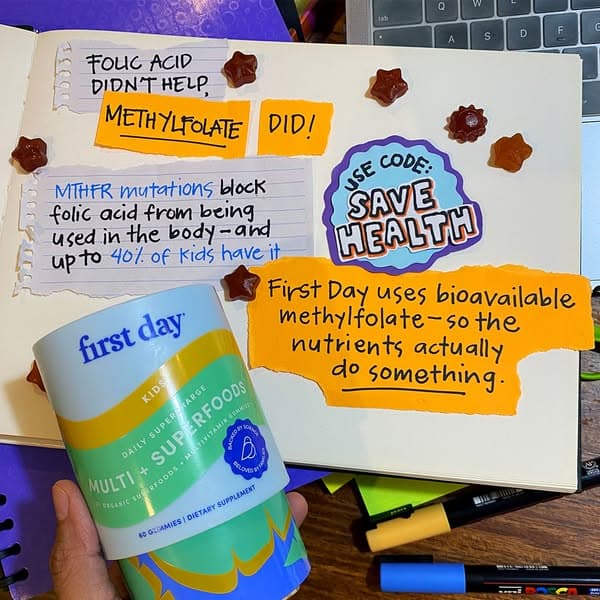 FOLIC ACID
DIDN'T HELP,
METHYLFOLATE DID!
MTHFR mutations block
folic acid from being
used in the body—and
up to 40% of kids have it
USE CODE:
SAVE
HEALTH
First Day uses bioavailable
methylfolate—so the
nutrients actually
do something.
first day
KIDS
DAILY SUPERCHARGE
MULTI + SUPERFOODS
ORGANIC SUPERFOODS • MULTIVITAMIN GUMMIES
BACKED BY SCIENCE
BELOVED BY FAMILIES
60 GUMMIES | DIETARY SUPPLEMENT
POSCA